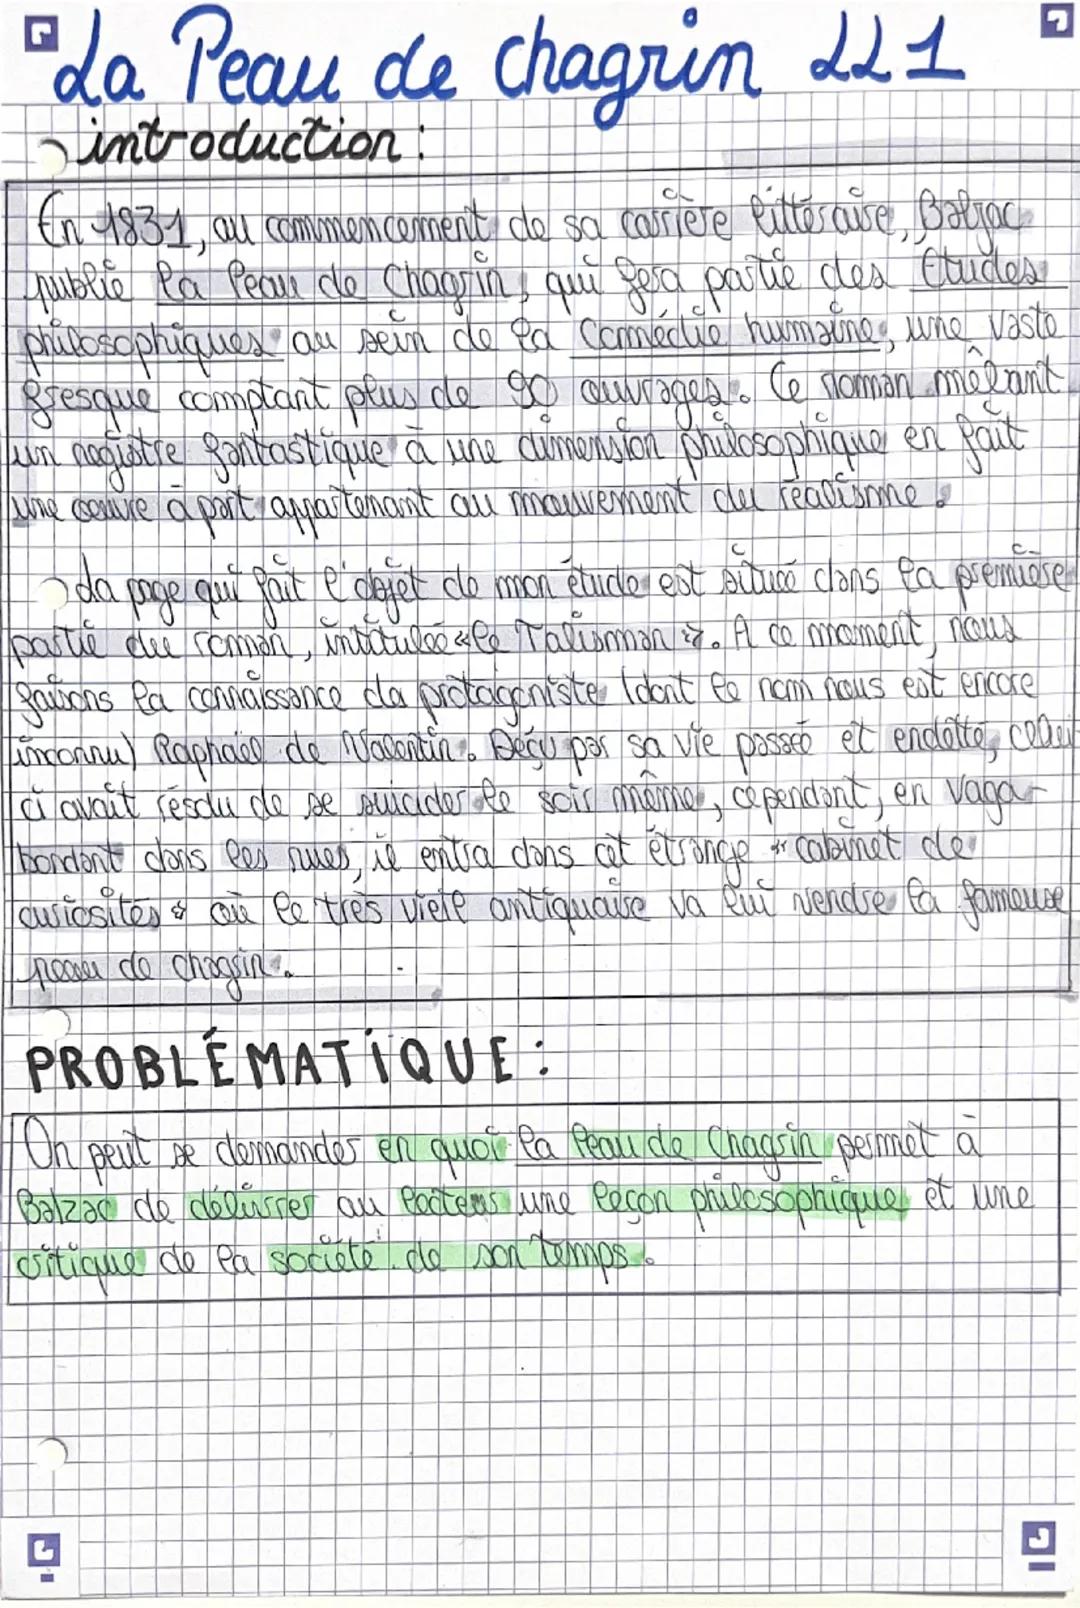 La Peau de chagrin LL1
introduction :
En 1831, au commencement de sa carrière littéraire, Balzac
publie la Peau de Chagrin, qui fera partie des Etudes
philosophiques au sein de la Comédie humaine, une vaste
fresque comptant plus de 90 ouvrages. Ce roman mêlant
un registre fantastique à une dimension philosophique en fait
une oeuvre à part appartenant au mouvement du réalisme.
La page qui fait l'objet de mon étude est située dans la première
partie du roman, intitulée « le Talisman ». A ce moment, nous
faisons la connaissance da protagoniste (dont le nom nous est encore
inconnu) Raphaël de Valentin. Déçu par sa vie passée et endetté, celui
ci avait résolu de se suicider le soir même, cependant, en vaga-
bondant dans les rues, il entra dans cet étrange « cabinet de
curiosités » où le très vieil antiquaire va lui vendre la fameuse
peau de chagrin.
PROBLÉMATIQUE :
On peut se demander en quoi la Peau de Chagrin permet à
Balzac de délivrer au lecteurs une leçon philosophique et une
critique de la société de son temps.